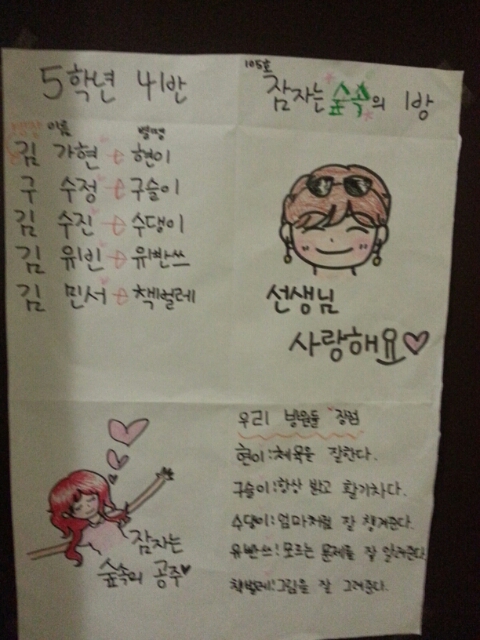 5학년 4반
방장 이름 별명
김 가현 현이
구 수정 구슬이
김 수진 수댕이
김 유빈 유빤쓰
김 민서 책벌레
105호
잠자는 숲속의 1방
선생님
사랑해요
잠자는
숲속의 공주
우리 방원들 장점
현이:체육을 잘한다.
구슬이:항상 밝고 활기차다.
수댕이:엄마처럼 잘 챙겨준다.
유빤쓰:모르는 문제를 잘 알려준다.
책벌레:그림을 잘 그려준다.